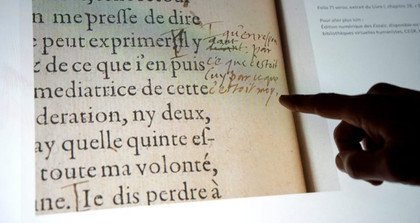 on me presse de dire
e peut exprimer Il y
z de ce que i'en puis
mediatrice de cette
deration, ny deux,
ay quelle quinte es-
toute ma volonté,
ne. Ie dis perdre à
qu'en respon
dant: par
ce que c'estoit
luy par ce que
c'estoit moy.
Folio 71 verso, extrait du Livre I, chapitre 28,
Pour aller plus loin :
Édition numérique des Essais, disponible en
bibliothèques virtuelles humanistes, CESR,